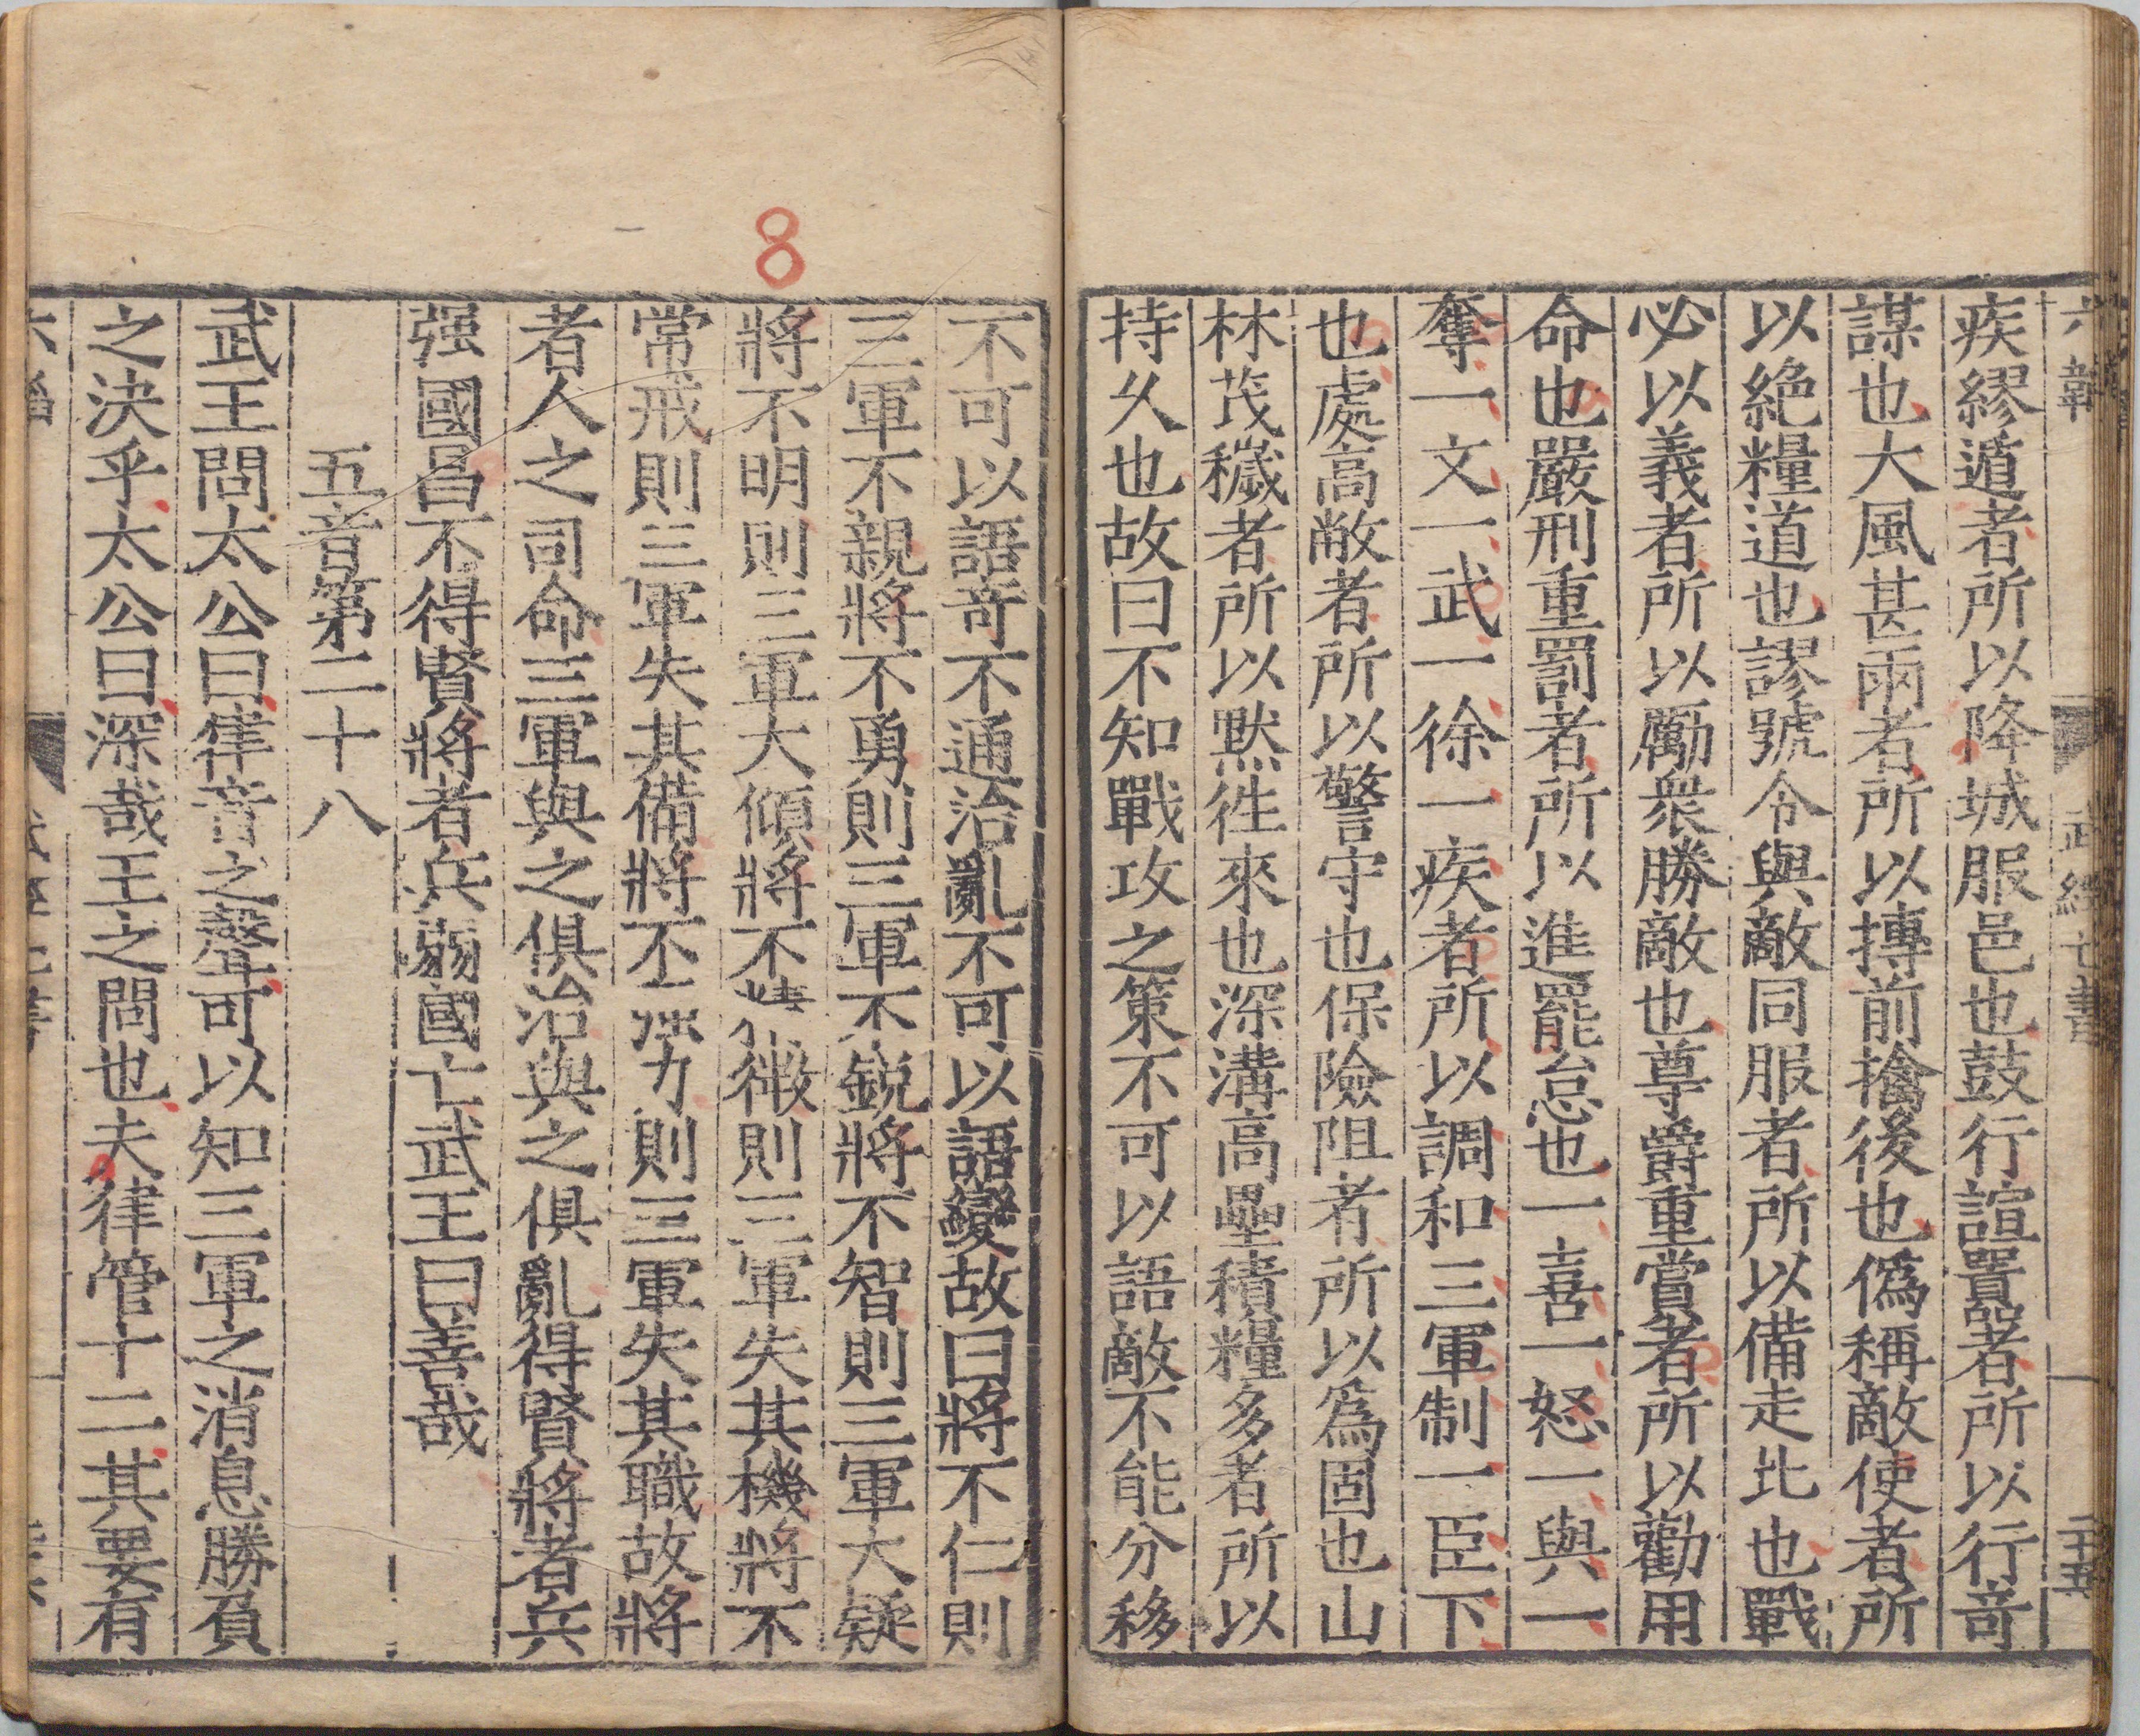 六韜 武經七書 二十五
疾繆遁者所以降城服邑也鼓行諠囂者所以行竒
謀也大風甚雨者所以摶前擒後也僞稱敵使者所
以絶糧道也謬號令與敵同服者所以備走北也戰
必以義者所以勵衆勝敵也尊爵重賞者所以勸用
命也嚴刑重罰者所以進罷怠也一喜一怒一與一
奪一文一武一徐一疾者所以調和三軍制一臣下
也處高敞者所以警守也保險阻者所以爲固也山
林茂穢者所以黙徃來也深溝高壘積糧多者所以
持乆也故曰不知戰攻之策不可以語敵不能分移
8
不可以語竒不通治亂不可以語變故曰將不仁則
三軍不親將不勇則三軍不鋭將不智則三軍大疑
將不明則三軍大傾將不精微則三軍失其機將不
常戒則三軍失其備將不强力則三軍失其職故將
者人之司命三軍與之俱治與之俱亂得賢將者兵
强國昌不得賢將者兵弱國亡武王曰善哉
五音第二十八
武王問太公曰律音之聲可以知三軍之消息勝負
之決乎太公曰深哉王之問也夫律管十二其要有
六韜 武經七書